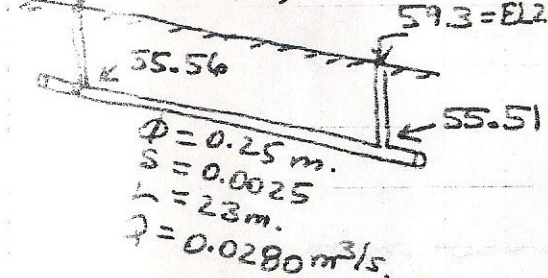 59.3 = EL2
55.56
55.51
Φ = 0.25 m.
S = 0.0025
L = 23 m.
Q = 0.0280 m³/s.